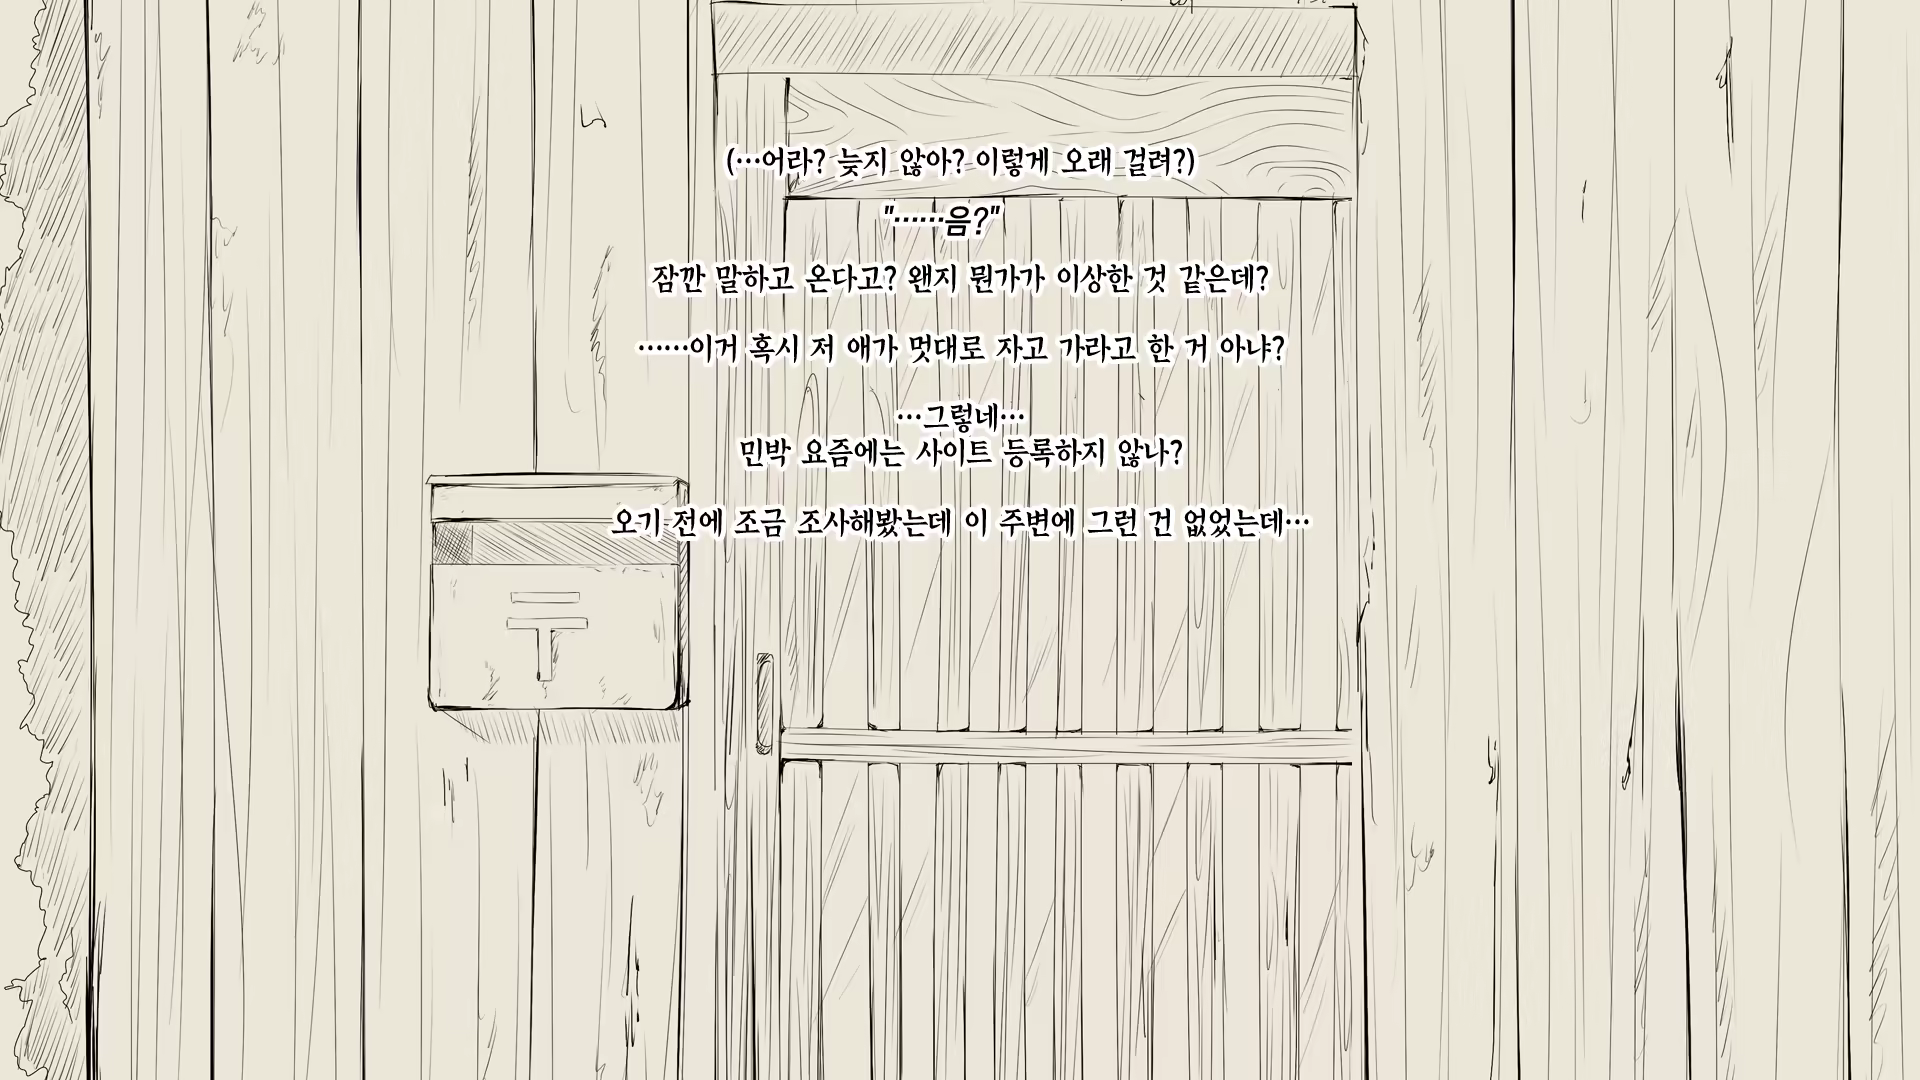 (…어라? 늦지 않아? 이렇게 오래 걸려?)
"……음?"
잠깐 말하고 온다고? 왠지 뭔가가 이상한 것 같은데?
……이거 혹시 저 애가 멋대로 자고 가라고 한 거 아냐?
…그렇네…
민박 요즘에는 사이트 등록하지 않나?
오기 전에 조금 조사해봤는데 이 주변에 그런 건 없었는데…
〒